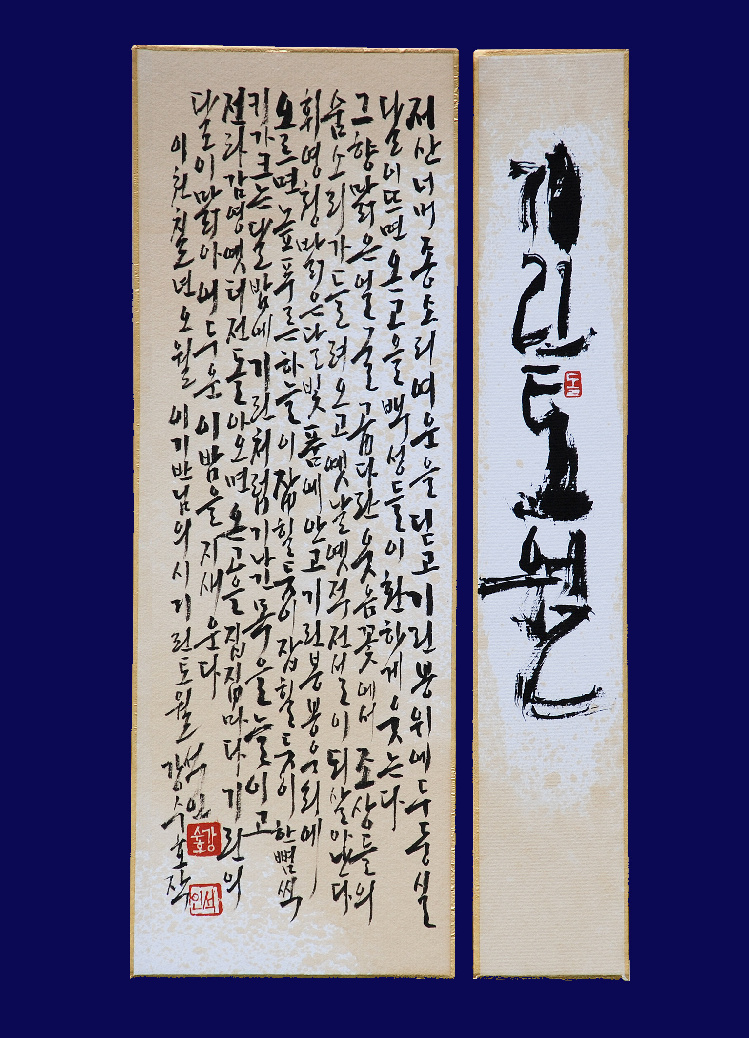 기린토월
저 산 너머 종소리 여운을 딛고 기린봉 위에 두둥실
달이 뜨면 온고을 백성들이 환하게 웃는다
그 향 맑은 얼굴 곱다란 웃음꽃에서 조상들의
숨소리가 들려오고 옛날옛적 전설이 되살아난다
휘영청 밝은 달빛 품에 안고 기린봉 봉우리에
오르면 높푸른 하늘이 잡힐 듯이 잡힐 듯이 한뼘씩
키가 크는 달밤에 기린처럼 기나긴 목을 늘이고
전라감영 옛터전 돌아오면 온고을 집집마다 기린의
달이 밝아 어두운 이 밤을 지새운다
이천칠년오월 이기반님의 시 기린토월 석인
강수호 작
강수호
석인